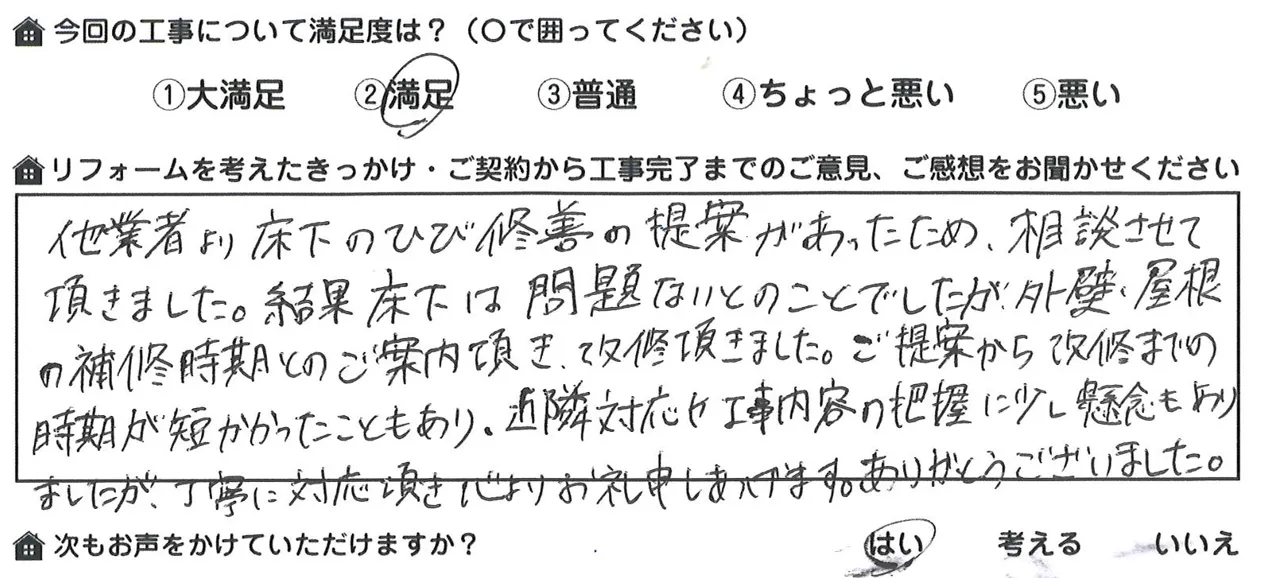 今回の工事について満足度は？（〇で囲ってください）
①大満足 ②満足 ③普通 ④ちょっと悪い ⑤悪い
リフォームを考えたきっかけ・ご契約から工事完了までのご意見、ご感想をお聞かせください
他業者より床下のひび修善の提案があったため、相談させて
頂きました。結果床下は問題ないとのことでしたが、外壁、屋根
の補修時期とのご案内頂き、改修頂きました。ご提案から改修までの
時期が短かかったこともあり、近隣対応や工事内容の把握に少し懸念もあり
ましたが、丁寧に対応頂き心よりお礼申しあげます。ありがとうございました。
次もお声をかけていただけますか？ はい 考える いいえ